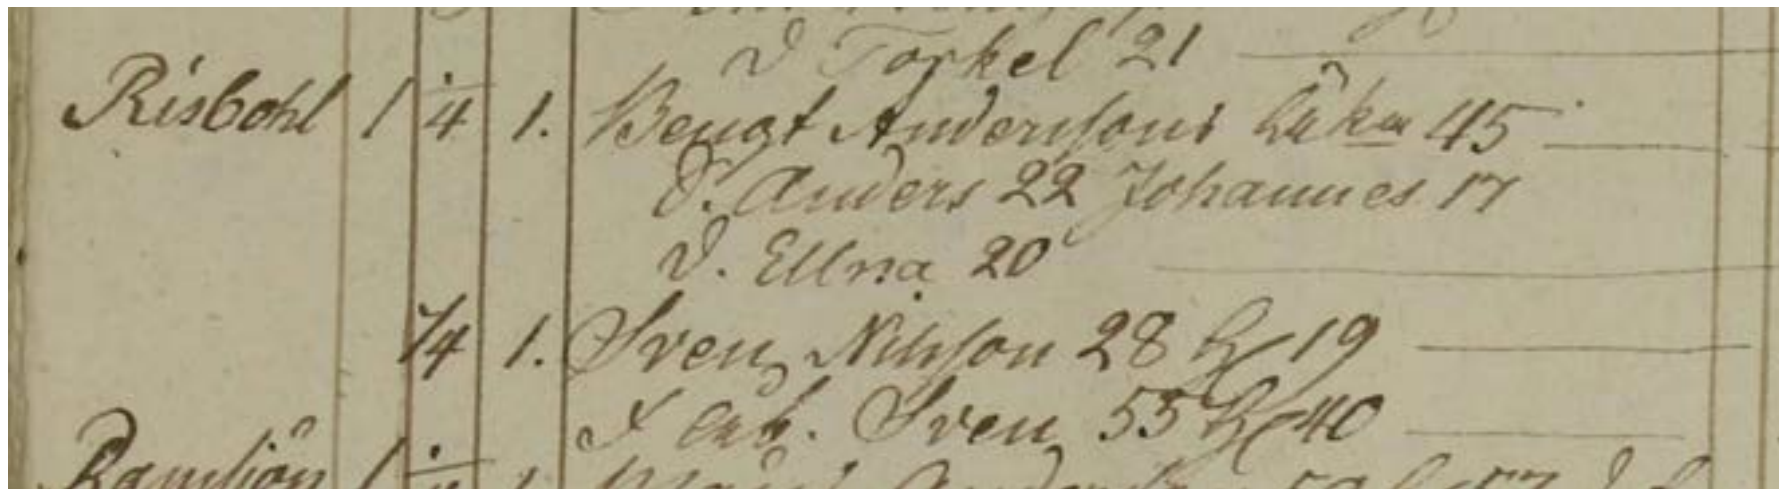 D Torkel 21
Risbohl 1 1/4 1. Bengt Andersons Enka 45
S. Anders 22 Johannes 17
D. Ellna 20
1/4 1. Sven Nilsson 28 H 19
Sven 55 H 40
Ramsjön 1 1. Måns